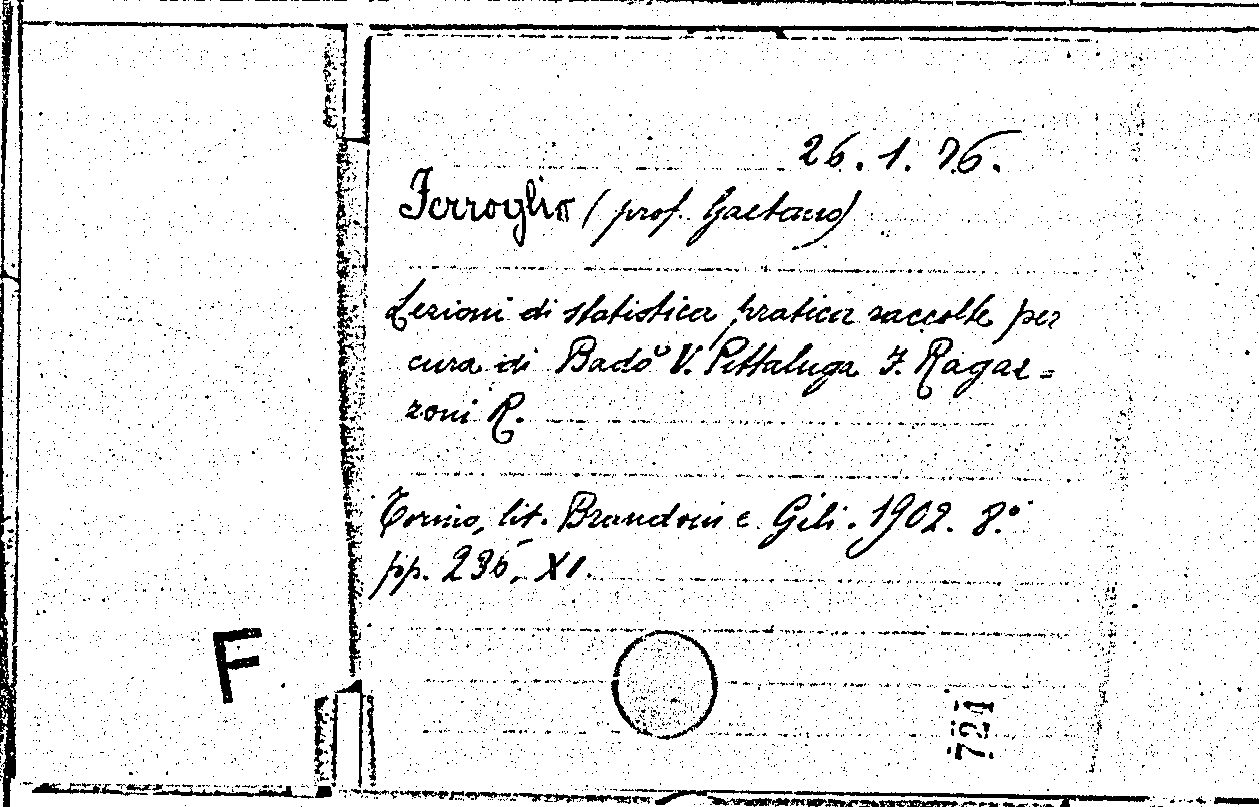 26.1.76.
Ferroglio (prof. Gaetano)
Lezioni di statistica pratica raccolte per
cura di Badò V. Pittaluga F. Ragaz=
zoni R.
Torino, lit. Brandoni e Gili. 1902. 8.°
pp. 236, XI.
F
721